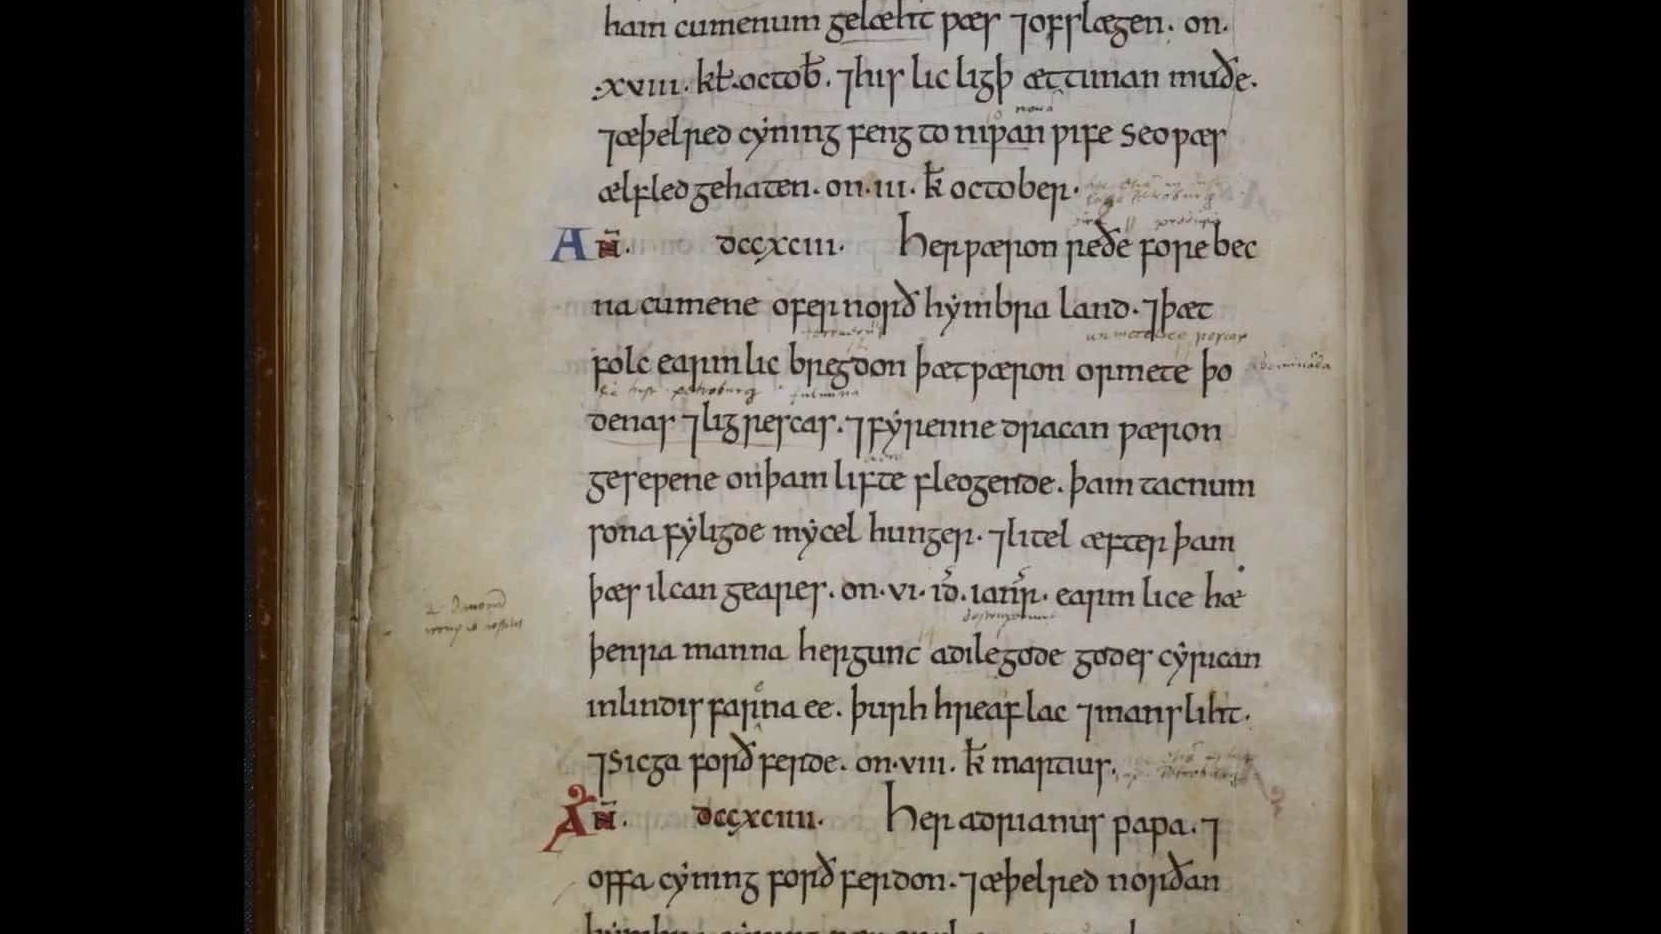 ham cumenum gelæht ƿæs ⁊ofslægen. on.
.xviii. kł. octob̄. ⁊his lic ligþ æt tinan muðe.
⁊æþelred cẏning feng to niƿan ƿife seo ƿæs
ælfled gehaten. on .iii. k̄ october.
AN̄. dccxciii. Her ƿæron reðe forebec
na cumene ofer norð hẏmbra land. ⁊þæt
folc earmlic bregdon þæt ƿæron ormete þo
denas ⁊ligrescas. ⁊fẏrenne dracan ƿæron
geseƿene onþam lifte fleogende. þam tacnum
sona fẏligde mẏcel hunger. ⁊litel æfter þam
þæs ilcan geares. on .vi. id̄. ianr̄. earmlice hæ
þenra manna hergunc adilegode godes cẏrican
inlindisfarna ee. þurh hreaflac ⁊mansliht.
⁊Sicga forðferde. on .viii. k̄ martius.
AN̄. dccxciiii. Her adrianus papa. ⁊
offa cẏning forðferdon. ⁊æþelred norðan